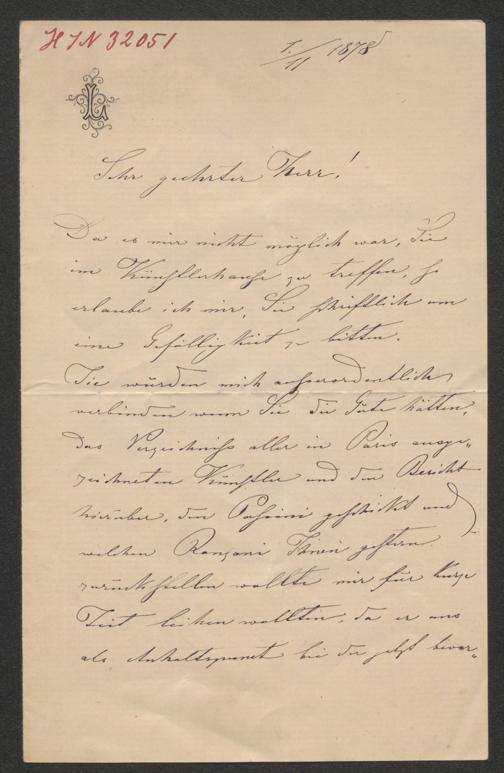 HIN 32051
1./11 1878
L
Sehr geehrter Herr!
Da es mir nicht möglich war, Sie
im Künstlerhause zu treffen, so
erlaube ich mir, Sie schriftlich um
eine Gefälligkeit zu bitten.
Sie würden mich außerordentlich
verbinden wenn Sie die Güte hätten,
das Verzeichniß aller in Paris ausge„
zeichneten Künstler und den Bericht
hierüber, den Passini geschickt und
welchen Ranzoni Ihnen gestern
zurückstellen wollte mir für kurze
Zeit leihen wollten, da er uns
als Anhaltspunct bei der jetzt bevor„